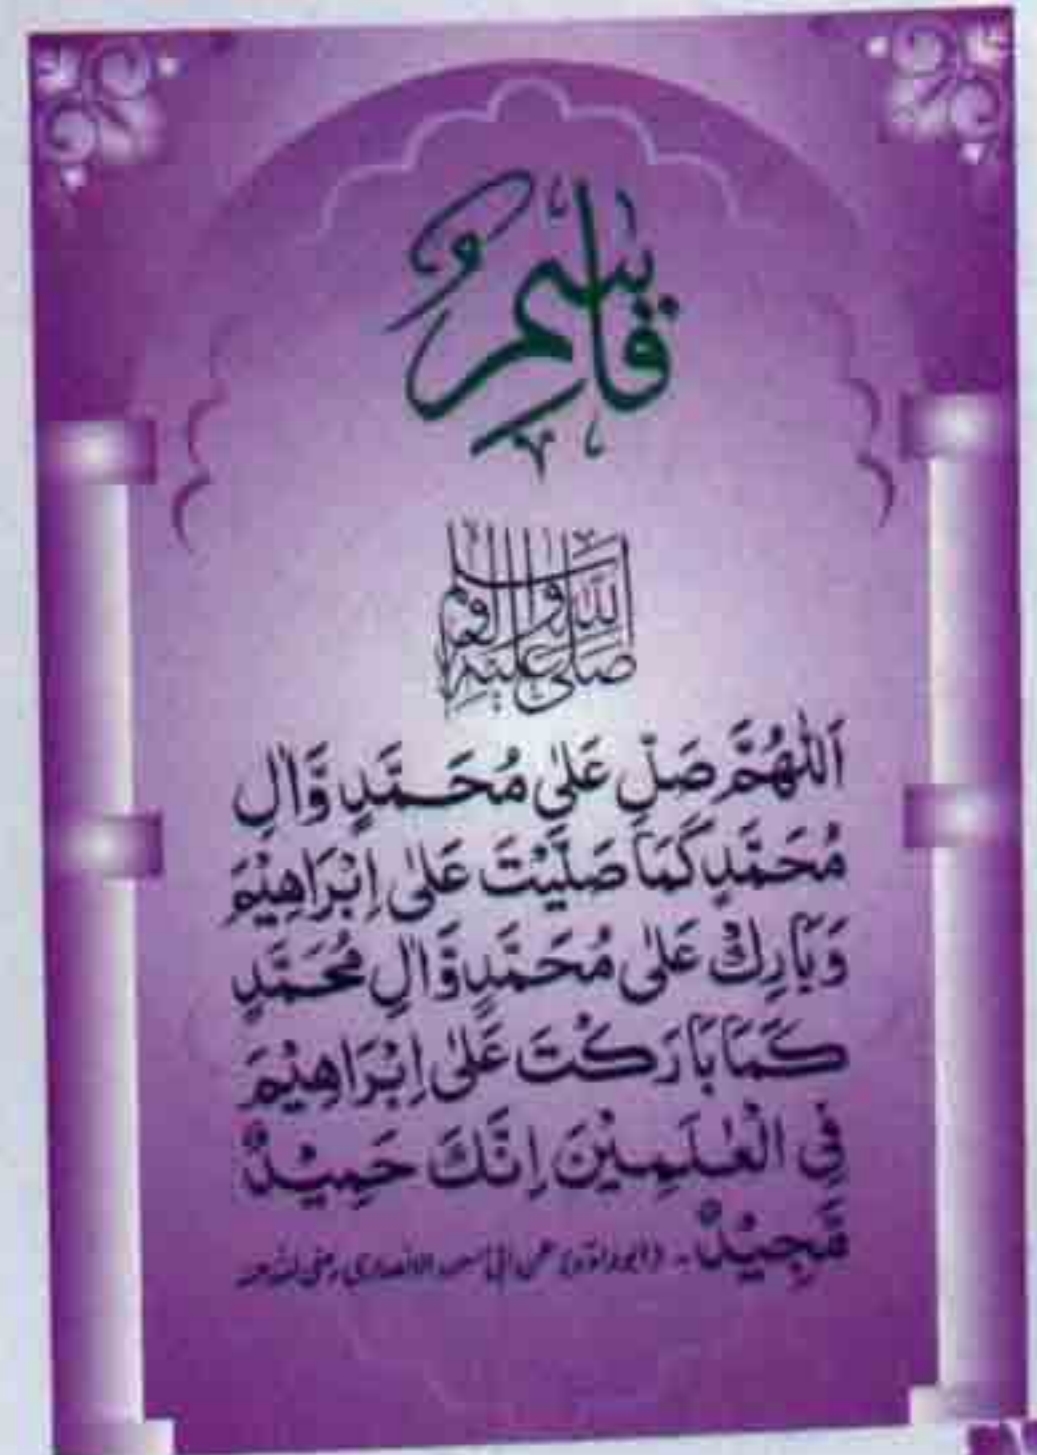 قَاسِمٌ
صلى الله عليه واله وسلم
اَللّٰهُمَّ صَلِّ عَلٰى مُحَمَّدٍ وَّاٰلِ
مُحَمَّدٍ كَمَا صَلَّيْتَ عَلٰى اِبْرَاهِيْمَ
وَبَارِكْ عَلٰى مُحَمَّدٍ وَّاٰلِ مُحَمَّدٍ
كَمَا بَارَكْتَ عَلٰى اِبْرَاهِيْمَ
فِي الْعٰلَمِيْنَ اِنَّكَ حَمِيْدٌ
مَّجِيْدٌ۔ (ابوداؤد) عن ابی مسعود الانصاری رضی اللہ عنہ